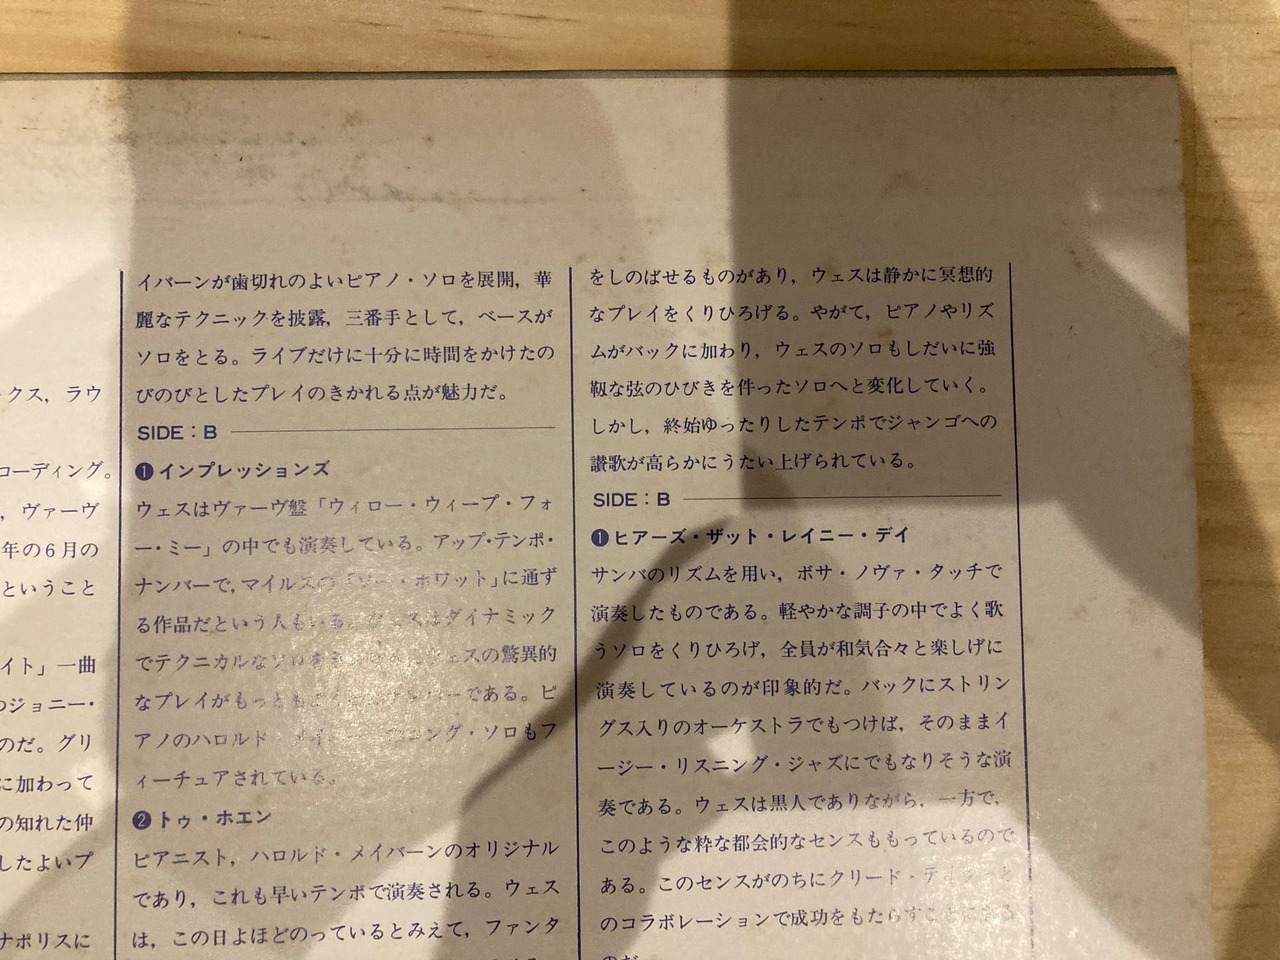 クス，ラウ
コーディング。
，ヴァーヴ
年の6月の
ということ
イト」一曲
のジョニー・
のだ。グリ
に加わって
の知れた仲
したよいプ
ナポリスに
イバーンが歯切れのよいピアノ・ソロを展開，華
麗なテクニックを披露，三番手として，ベースが
ソロをとる。ライブだけに十分に時間をかけたの
びのびとしたプレイのきかれる点が魅力だ。
SIDE：B
❶インプレッションズ
ウェスはヴァーヴ盤「ウィロー・ウィープ・フォ
ー・ミー」の中でも演奏している。アップ・テンポ・
ナンバーで，マイルスの「ソー・ホワット」に通ず
る作品だという人もいる。ウェスはダイナミック
でテクニカルなソロを ウェスの驚異的
なプレイがもっとも である。ピ
アノのハロルド・メイ ング・ソロもフ
ィーチュアされている。
❷トゥ・ホエン
ピアニスト，ハロルド・メイバーンのオリジナル
であり，これも早いテンポで演奏される。ウェス
は，この日よほどのっているとみえて，ファンタ
をしのばせるものがあり，ウェスは静かに冥想的
なプレイをくりひろげる。やがて，ピアノやリズ
ムがバックに加わり，ウェスのソロもしだいに強
靱な弦のひびきを伴ったソロへと変化していく。
しかし，終始ゆったりしたテンポでジャンゴへの
讃歌が高らかにうたい上げられている。
SIDE：B
❶ヒアーズ・ザット・レイニー・デイ
サンバのリズムを用い，ボサ・ノヴァ・タッチで
演奏したものである。軽やかな調子の中でよく歌
うソロをくりひろげ，全員が和気合々と楽しげに
演奏しているのが印象的だ。バックにストリン
グス入りのオーケストラでもつけば，そのままイ
ージー・リスニング・ジャズにでもなりそうな演
奏である。ウェスは黒人でありながら，一方で，
このような粋な都会的なセンスももっているので
ある。このセンスがのちにクリード・テイラーと
のコラボレーションで成功をもたらすことになる
のだ。